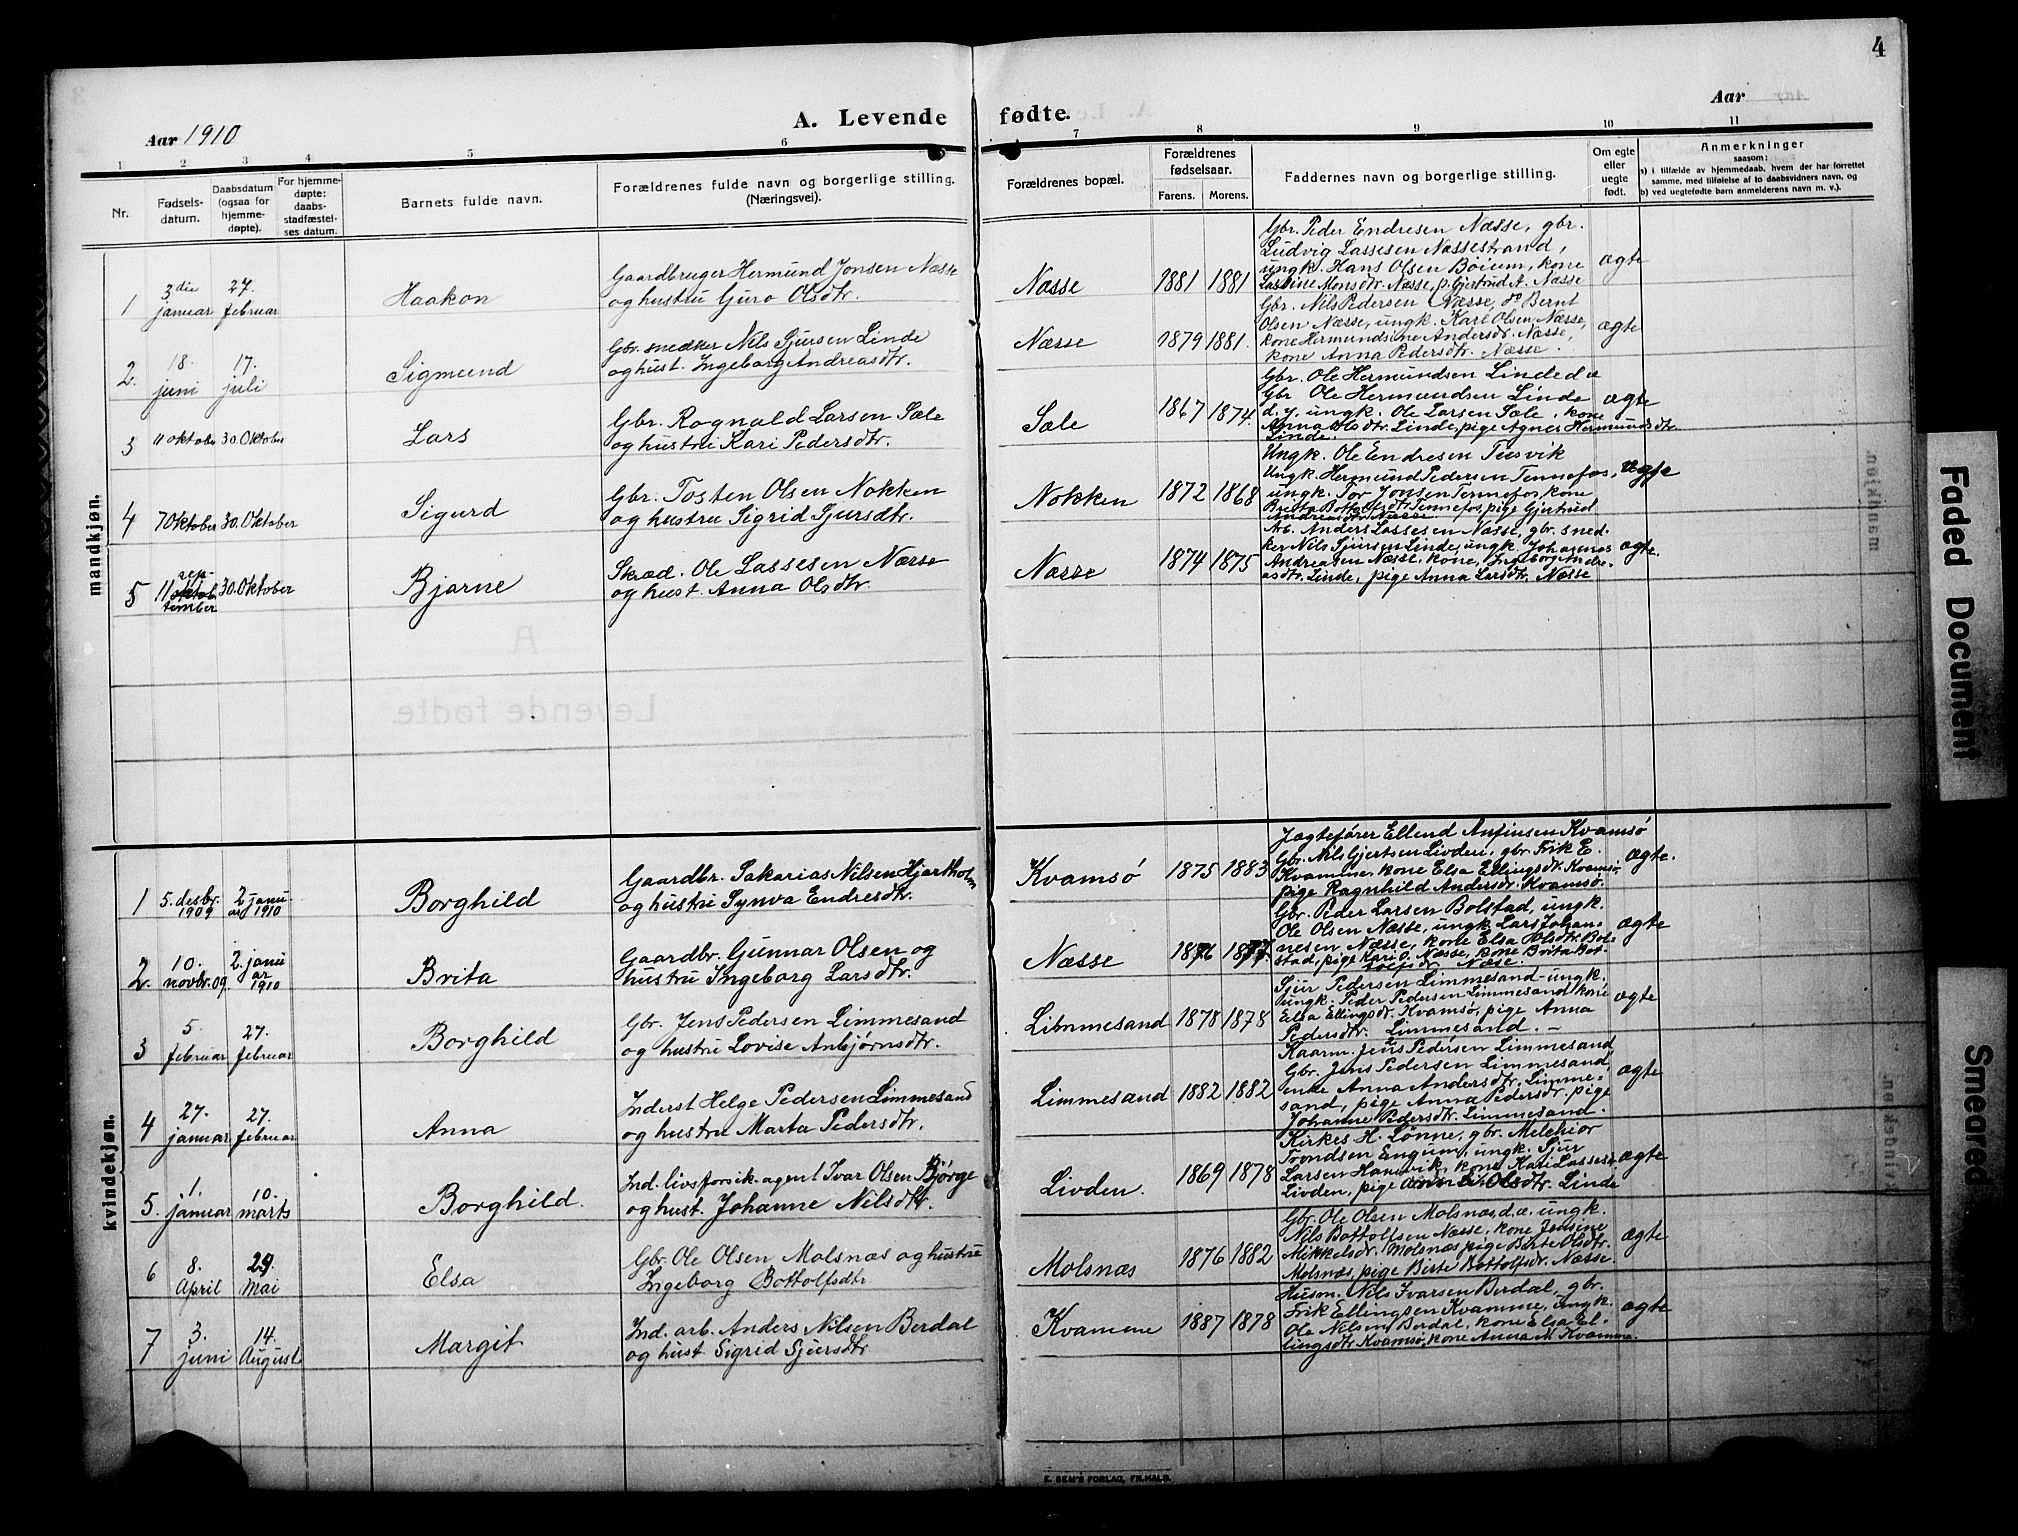 4
Aar 1910
A. Levende fødte.
Aar
1 2 3 4 5 6 7 8 9 10 11
Nr.
Fødsels-
datum.
Daabsdatum
(ogsaa for
hjemme-
døpte).
For hjemme-
døpte:
daabs-
stadfæstel-
ses datum.
Barnets fulde navn.
Forældrenes fulde navn og borgerlige stilling.
(Næringsvei).
Forældrenes bopæl.
Forældrenes
fødselsaar.
Farens. Morens.
Faddernes navn og borgerlige stilling.
Om egte
eller
uegte
født.
Anmerkninger
saasom:
a) i tilfælde av hjemmedaab, hvem der har forrettet
samme, med tilføielse af to daabsvidners navn, og
b) ved uegtefødte barn anmelderens navn m. v.).
mandkjøn.
1
3die
januar
27.
februar
Haakon
Gaardbruger Hermund Jonsen Næsse
og hustru Guro Olsdtr.
Næsse
1881 1881
Gbr. Peder Endresen Næsse, gbr.
Ludvig Lassesen Næssestrand,
ungk. Hans Olsen Böium, kone
Monsdtr. Næsse, p. Gjertrud A. Næsse
ægte
2.
18.
juni
17.
juli
Sigmund
Gbr. snedker Nils Sjursen Linde
og hust. Ingeborg Andreasdtr.
Næsse
1879 1881.
Gbr. Nils Pedersen Næsse, do Bernt
Olsen Næsse, ungk. Karl Olsen Næsse,
kone Hermundsine Andersdtr. Næsse,
kone Anna Pedersdtr. Næsse.
ægte
3
11 oktober 30. Oktober
Lars
Gbr. Rognald Larsen Sæle
og hustru Kari Pedersdtr.
Sæle
1867 1874.
Gbr. Ole Hermundsen Linde d æ
Gbr Ole Hermundsen Linde
d. y. ungk. Ole Larsen Sæle, kone
Anna Olsdtr. Linde, pige Agnes Hermundsdtr
Linde.
ægte
4
7 Oktober 30. Oktober
Sigurd
Gbr. Tosten Olsen Nokken
og hustru Sigrid Sjursdtr.
Nokken
1872 1868
Ungk. Ole Endresen Tusvik
Ungk. Hermund Pedersen Tennefos,
ungk. Tor Jonsen Tennefos, kone
Brita Bottolfsdtr. Tennefos, pige Gjertrud
Andreasdtr. Næsse
5
11 oktob
sep-
tember
30 Oktober
Bjarne
Skræd. Ole Lassesen Næsse
og hust. Anna Olsdtr.
Næsse
1874 1875
Arb. Anders Lassesen Næsse, gbr. sned-
ker Nils Sjursen Linde, ungk. Johannes
Andreasen Næsse, kone, Ingeborg Andre-
asdtr. Linde, pige Anna Larsdtr. Næsse
ægte.
kvindekjøn.
1
5. desbr.
1909
2 janu
ar 1910
Borghild
Gaardbr. Sakarias Nilsen Hjartholm
og hustru Synva Endresdtr.
Kvamsö
1875 1883
Jægtefører Ellend Anfinsen Kvamsö
Gbr. Nils Gjertsen Livden, gbr. Frik E.
Kvamme, kone Elsa Ellingsdtr. Kvamsö,
pige Ragnhild Andersdtr. Kvamsö.
ægte.
2.
10.
novbr. 09.
2. janu
ar
1910
Brita
Gaardbr. Gunnar Olsen og
hustru Ingeborg Larsdtr.
Næsse
1876 1877
Gbr. Peder Larsen Bolstad, ungk.
Ole Olsen Næsse, ungk. Lars Johan-
nesen Næsse, kone Elsa Olsdtr. Bol-
stad, pige Kari O. Næsse, kone Brita Bot-
tolfsdtr. Næsse.
ægte
3
5
februar
27.
februar
Borghild
Gbr. Jens Pedersen Limmesand
og hustru Lovise Anbjörnsdtr.
Limmesand
1878 1878
Sjur Pedersen Limmesand ungk.
ungk. Peder Pedersen Limmesand kone
Elsa Ellingsdtr. Kvamsö, pige Anna
Pedersdtr. Limmesand. –
ægte
4
27.
januar
27.
februar
Anna
Inderst Helge Pedersen Limmesand
og hustru Marta Pedersdtr.
Limmesand
1882 1882
Kaarm. Jens Pedersen Limmesand
Gbr. Jens Pedersen Limmesand,
enke Anna Andersdtr. Limme-
sand, pige Anna Pedersdtr, pige
Johanne Pedersdtr. Limmesand.
ægte
5.
1.
januar
10.
marts
Borghild.
Ind. livsforsik. agent Ivar Olsen Bjørge
og hust. Johanne Nilsdtr.
Livden.
1869 1878
Kirkes. H. Lönne, gbr. Melchior
Trondsen Engum, ungk. Sjur
Larsen Hamvik, kone Kari Lassesd.
Livden, pige Olsdtr. Linde
ægte
6
8.
April
29.
Mai
Elsa
Gbr. Ole Olsen Molsnæs og hustru
Ingeborg Bottolfsdtr
Molsnæs
1876 1882
Gbr. Ole Olsen Molsnæs, d. æ. ungk.
Nils Bottolfsen Næsse, kone Jensine
Mikkelsdtr. Molsnæs, pige Birte Olsdtr.
Molsnæs, pige Birte Bottolfsdtr. Næsse.
ægte
7
3.
juni
14.
August
Margit
Ind. arb. Anders Nilsen Berdal
og hust. Sigrid Sjursdtr
Kvamme
1887 1878
Husm. Nils Ivarsen Berdal, gbr.
Frik Ellingsen Kvamme, ungk.
Ole Nilsen Berdal, kone Elsa El-
lingsdtr Kvamsö, kone Anna M. Kvamme.
ægte
E. SEM'S FORLAG, FR.HALD.
Faded Document
Smeared